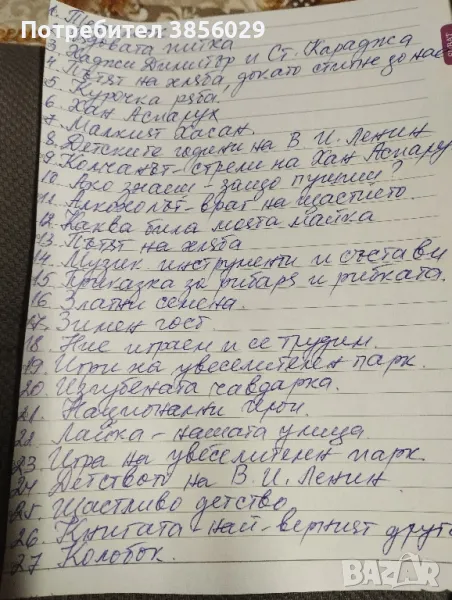 Потребител 3856029
1. Тр
2.
3. довата питка
3. Хаджи Димитър и Ст. Караджа
4. Пътят на хляба, докато стигне до нас
5. Курочка ряба.
6. Хан Аспарух
7. Малкият Хасан.
8. Детските години на В. И. Ленин
9. Колчанът-стрели на Хан Аспарух
10. Ако знаеш - защо пушиш?
11. Алкохолът - враг на щастието
12. Каква била моята майка
13. Пътят на хляба
14. Музик. инструменти и състави
15. Приказка за рибаря и рибката.
16. Златни семена.
17. Зимен гост.
18. Ние играем и се трудим.
19. Игри на увеселителен парк.
20. Изгубената чавдарка.
21. Национални герои.
22. Лайка - нашата улица
23. Игра на увеселителен парк.
24. Детството на В. И. Ленин
25. Щастливо детство
26. Книгата най-верният друга
27. Колобок.
BAZAR